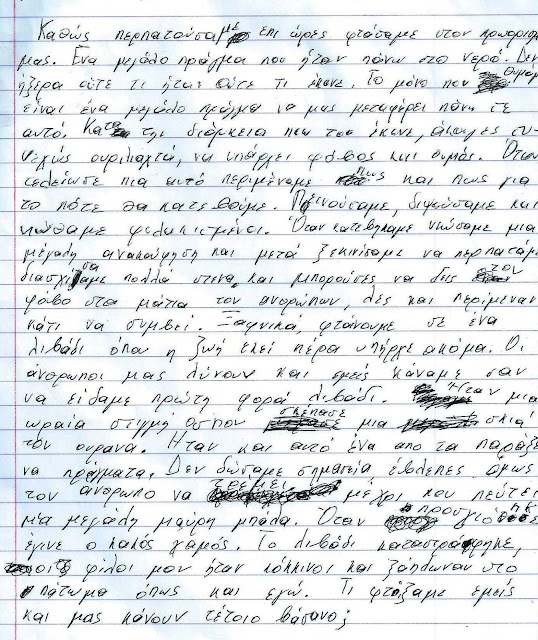 Καθώς περπατούσαμε επι ώρες φτάσαμε στον προορισμό
μας. Ένα μεγάλο πράγμα που ήταν πάνω στο νερό. Δεν
ήξερα ούτε τι ήταν ούτε τι έκανε. Το μόνο που θυμάμαι
είναι ένα μεγάλο πράγμα να μας μεταφέρει πάνω σε
αυτό. Κατα την διάρκεια που το έκανε, άκουγες συ-
νεχώς ουρλιαχτά, να υπάρχει φόβος και θυμός. Όταν
τελείωσε πια αυτό περιμέναμε πως και πως για
το πότε θα κατεβούμε. Πεινούσαμε, διψούσαμε και
νιώθαμε φυλακισμένοι. Όταν κατεβήκαμε νιώσαμε μια
μεγάλη ανακούφηση και μετά ξεκινίσαμε να περπατάμε
διασχίσαμε πολλά στενα, και μπορούσες να δεις τον
φόβο στα μάτια των ανθρώπων, λες και περίμεναν
κάτι να συμβεί. Ξαφνικα, φτάνουμε σε ένα
λιβάδι όπου η ζωή εκεί πέρα υπήρχε ακόμα. Οι
άνθρωποι μας λύνουν και εμείς κάναμε σαν
να είδαμε πρώτη φορά λιβάδι. Ήταν μια
ωραία στιγμή ώσπου σκέπασε μια σκιά
τον ουρανο. Ήταν και αυτό ένα απο τα παράξε
να πράγματα. Δεν δώσαμε σημασία έβλεπες όμως
τον άνθρωπο να τρέμει μέχρι που πέφτει
μία μεγάλη μαύρη μπάλα. Όταν προσγιο
έγινε ο κακός χαμός. Το λιβάδι καταστράφηκε,
οι φίλοι μου ήταν κόκκινοι και ξάπλωναν στο
πάτωμα όπως και εγώ. Τι φτάξαμε εμείς
και μας κάνουν τέτοιο βάσανο;